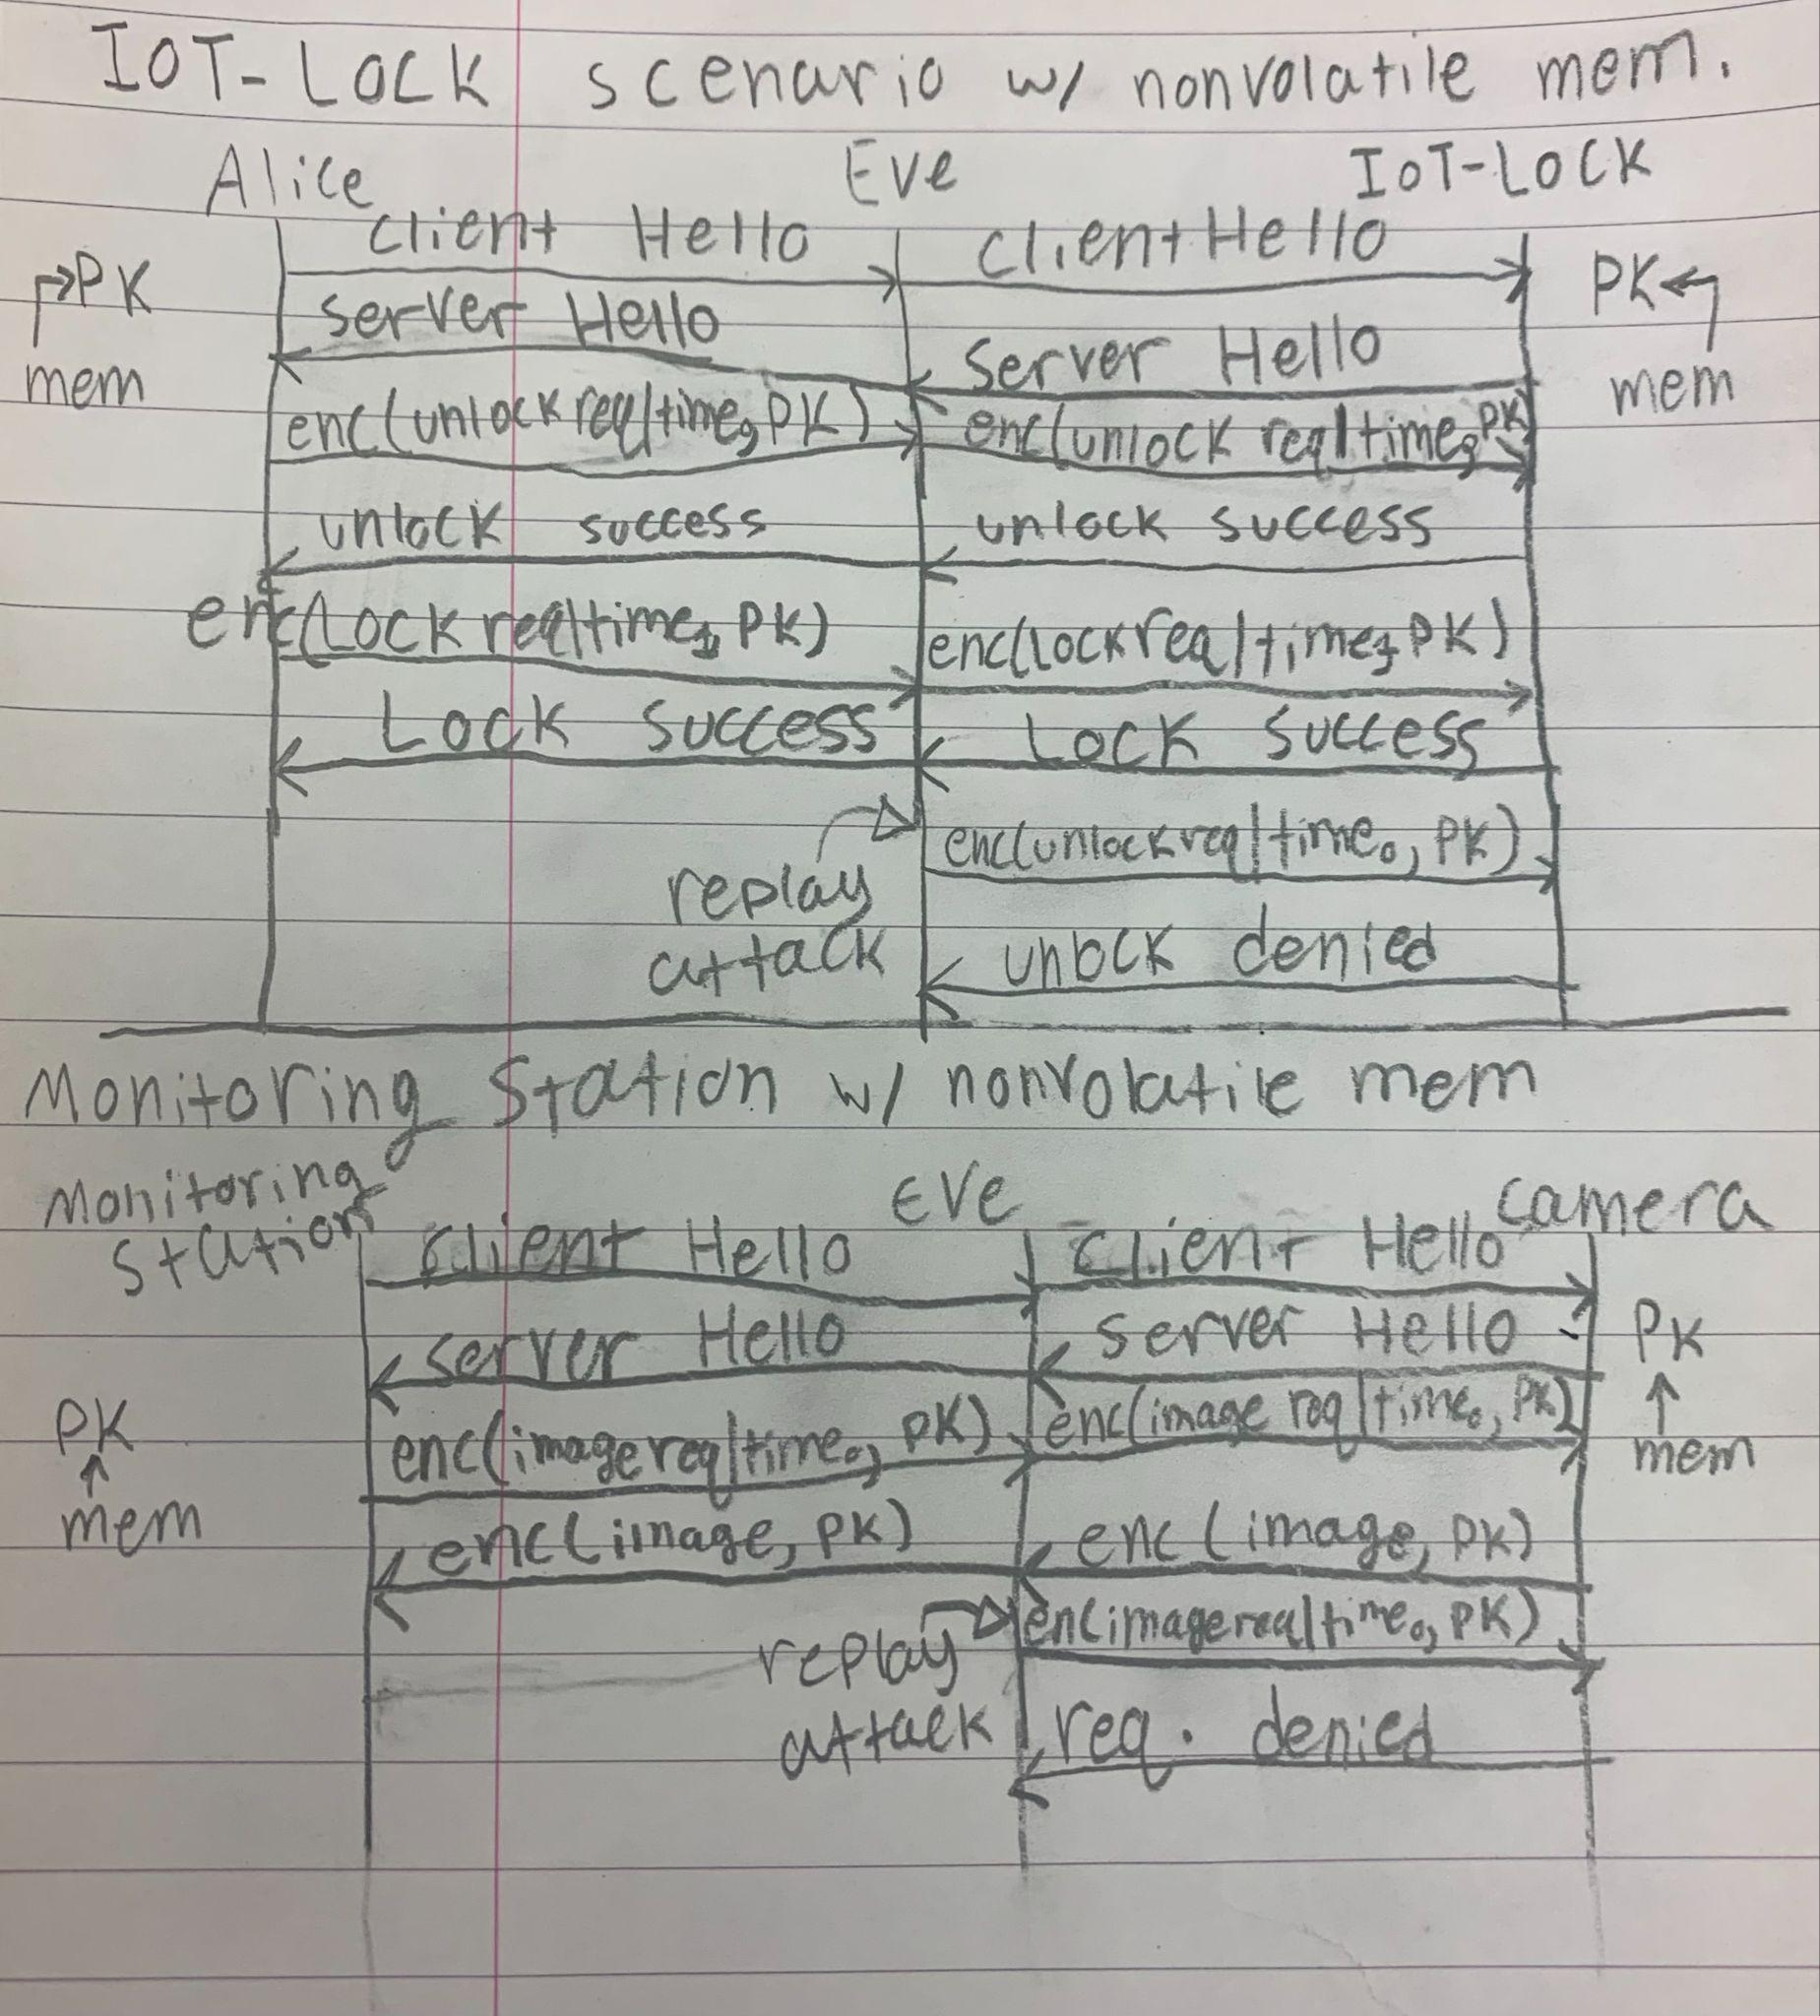 IOT-LOCK scenario w/ nonvolatile mem.
Alice Eve IOT-LOCK
client Hello client Hello
PK PK
server Hello Server Hello
mem mem
enc(unlock req|time0, PK) enc(unlock req|time0, PK)
unlock success unlock success
enc(Lock req|time1, PK) enc(lock req|time1, PK)
Lock success Lock success
enc(unlock req|time0, PK)
replay
attack unlock denied
Monitoring Station w/ nonvolatile mem
Monitoring
Station EVe camera
client Hello client Hello
server Hello server Hello PK
PK enc(image req|time0, PK) enc(image req|time0, PK)
mem mem
enc(image, PK) enc(image, PK)
enc(image req|time0, PK)
replay
attack req. denied